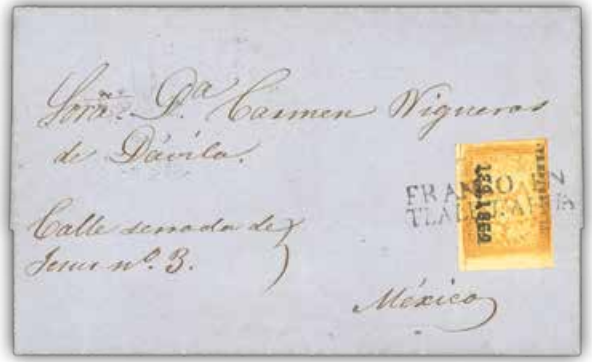 Sora. Da Carmen Vigueras
de Dávila.
Calle serrada de
Jesus nº. 3.
FRANCO EN
México